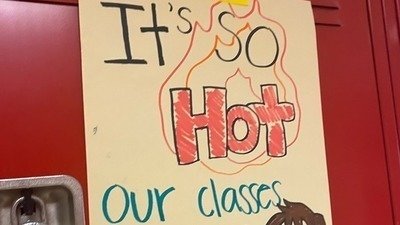 It's so
Hot
our classes